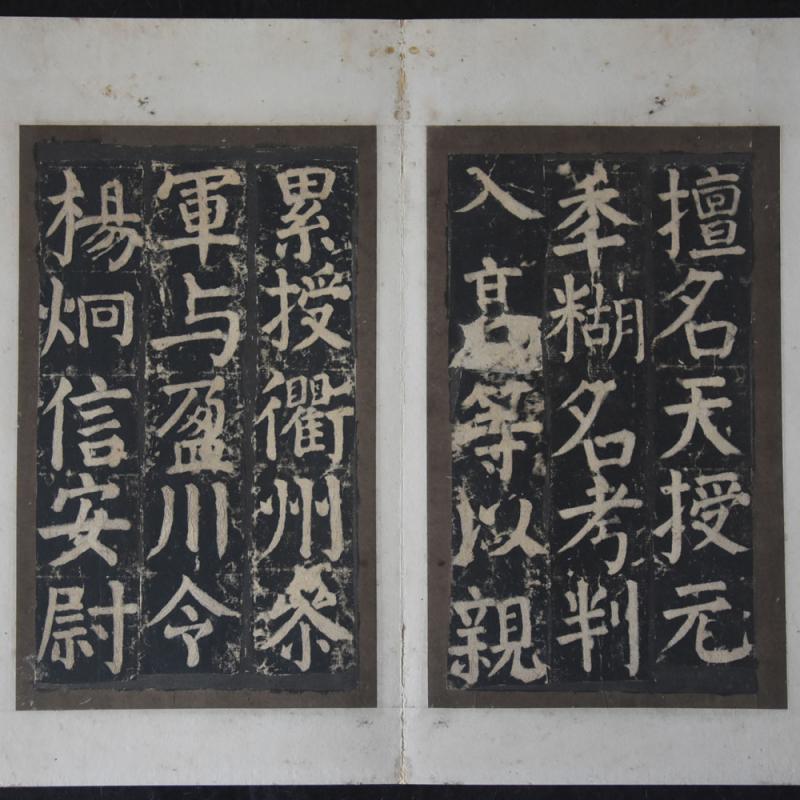 擅名天授元
秊糊名考判
入高等以親
累授衢州叅
軍与盈川令
楊炯信安尉